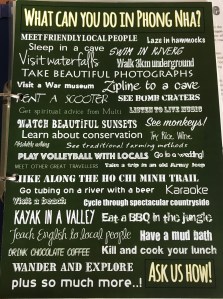 WHAT CAN YOU DO IN PHONG NHA?
MEET FRIENDLY LOCAL PEOPLE Laze in hammocks
Sleep in a cave SWIM IN RIVERS
Visit waterfalls Walk 3km underground
TAKE BEAUTIFUL PHOTOGRAPHS
Visit a War museum Zipline to a cave
RENT A SCOOTER SEE BOMB CRATERS
Get spiritual advice from Multi LISTEN TO LIVE MUSIC
WATCH BEAUTIFUL SUNSETS See monkeys!
Learn about conservation Try Rice Wine.
See traditional farming methods
PLAY VOLLEYBALL WITH LOCALS Go to a wedding!
MEET OTHER GREAT TRAVELLERS Take a trip in an old Russian Jeep
HIKE ALONG THE HO CHI MINH TRAIL
Go tubing on a river with a beer Karaoke
Visit a beach Cycle through spectacular countryside
KAYAK IN A VALLEY Eat a BBQ in the jungle
Teach English to local people Have a mud bath
DRINK CHOCOLATE COFFEE Kill and cook your lunch
WANDER AND EXPLORE
plus so much more..! ASK US HOW!